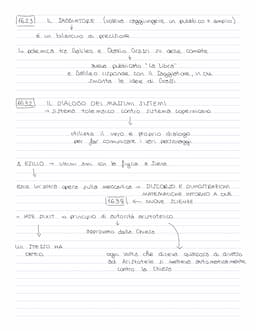 1623 IL SAGGIATORE (voleva raggiungere un pubblico + ampio)
è un bilancino di precisione
la polemica tra Galileo e Orazio Grassi si deve
aveva pubblicato "la Libra"
e Galileo risponde con il Saggiatore, in cui
smonta le idee di Grassi
1632 IL DIALOGO DEI MASSIMI SISTEMI
→ sistema tolemaico contro sistema copernicano
utilizza il vero e proprio dialogo
per far comunicare i vari personaggi
ESILIO → ultimi anni con la figlia a Siena
opera sulla meccanica → DISCORSI E DIMOSTRAZIONI
MATEMATICHE INTORNO A DUE
1638 NUOVE SCIENZE
→ IPSE DIXIT → principio di autorità aristotelico
approvato dalla Chiesa
LUI STESSO HA
DETTO ogni volta che diceva qualcosa di diverso
da Aristotele si metteva automaticamente
contro la Chiesa